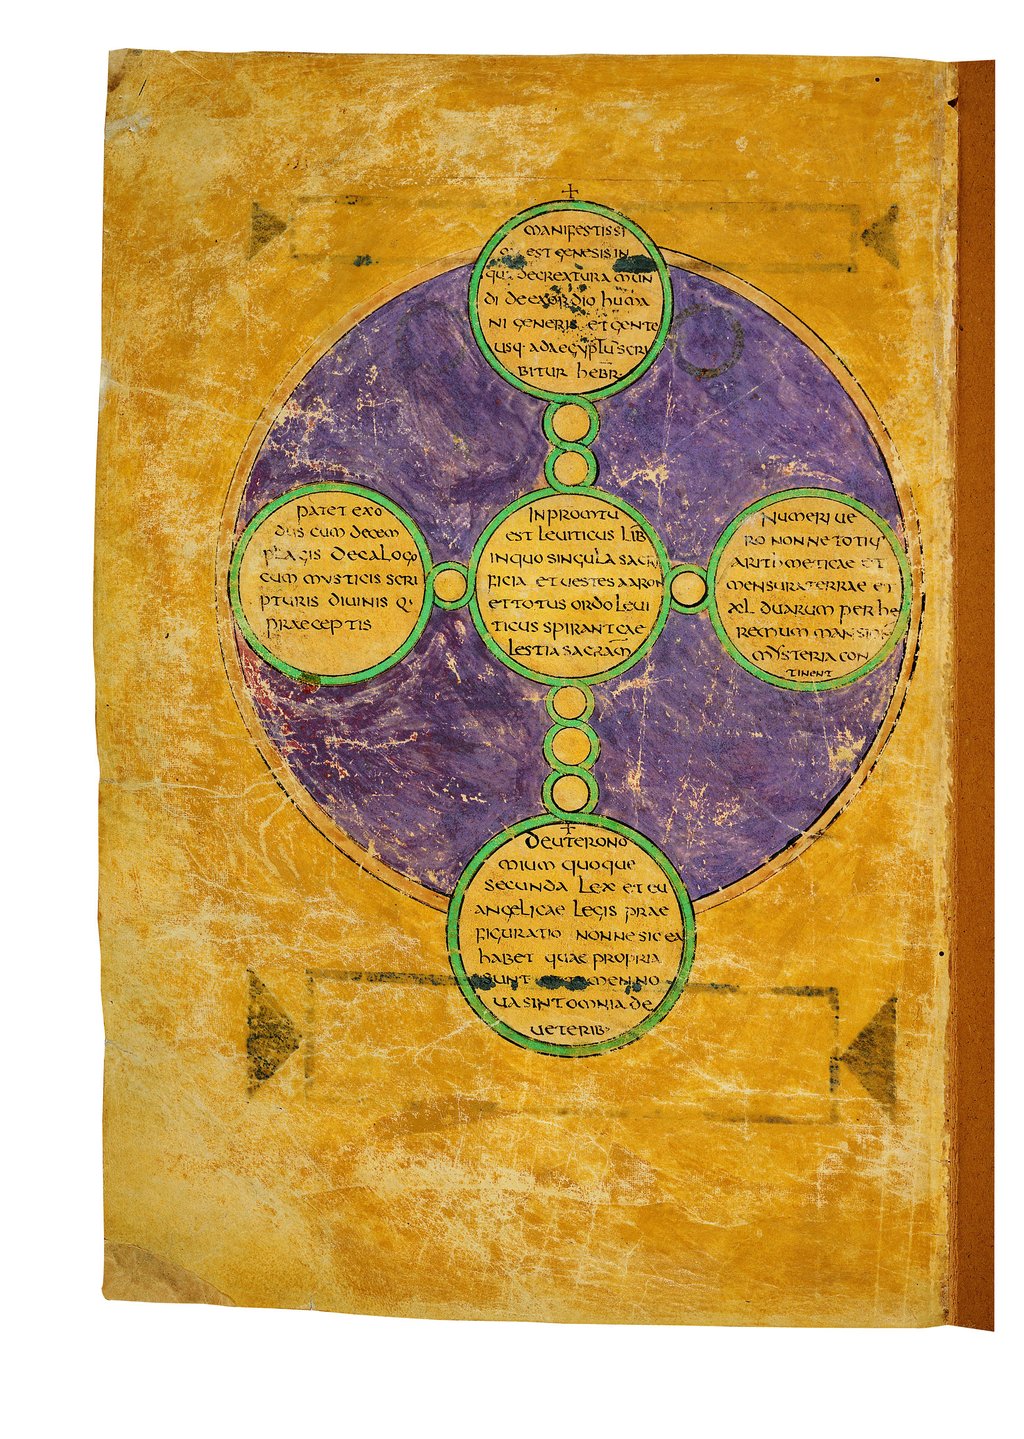 MANIFESTISSI
EST GENESIS IN
QUA DE CREATURA MUN
DI DE EXORDIO HUMA
NI GENERIS ET GENTE
USQ· AD AEGYPTU SCRI
BITUR HEBR·
PATET EXO
DUS CUM DECEM
PLAGIS DECALOGO
CUM MYSTICIS SCRI
PTURIS DIUINIS Q·
PRAECEPTIS
IN PROMTU
EST LEUITICUS LIB
IN QUO SINGULA SACRI
FICIA ET UESTES AARON
ET TOTUS ORDO LEUI
TICUS SPIRANT CAE
LESTIA SACRAM
NUMERI UE
RO NONNE TOTIUS
ARITHMETICAE ET
MENSURA TERRAE ET
XL DUARUM PER HE
REMUM MANSION
MYSTERIA CON
TINENT
DEUTERONO
MIUM QUOQUE
SECUNDA LEX ET EU
ANGELICAE LEGIS PRAE
FIGURATIO NONNE SIC EA
HABET QUAE PROPRIA
SUNT MEN NO
UA SINT OMNIA DE
UETERIB·